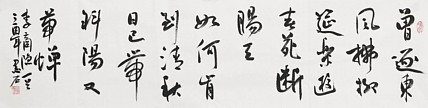 曾逐東
風拂
筵樂遊
春苑斷
腸天
如何肯
到清秋
日已帶
斜陽又
帶蟬
李商隐